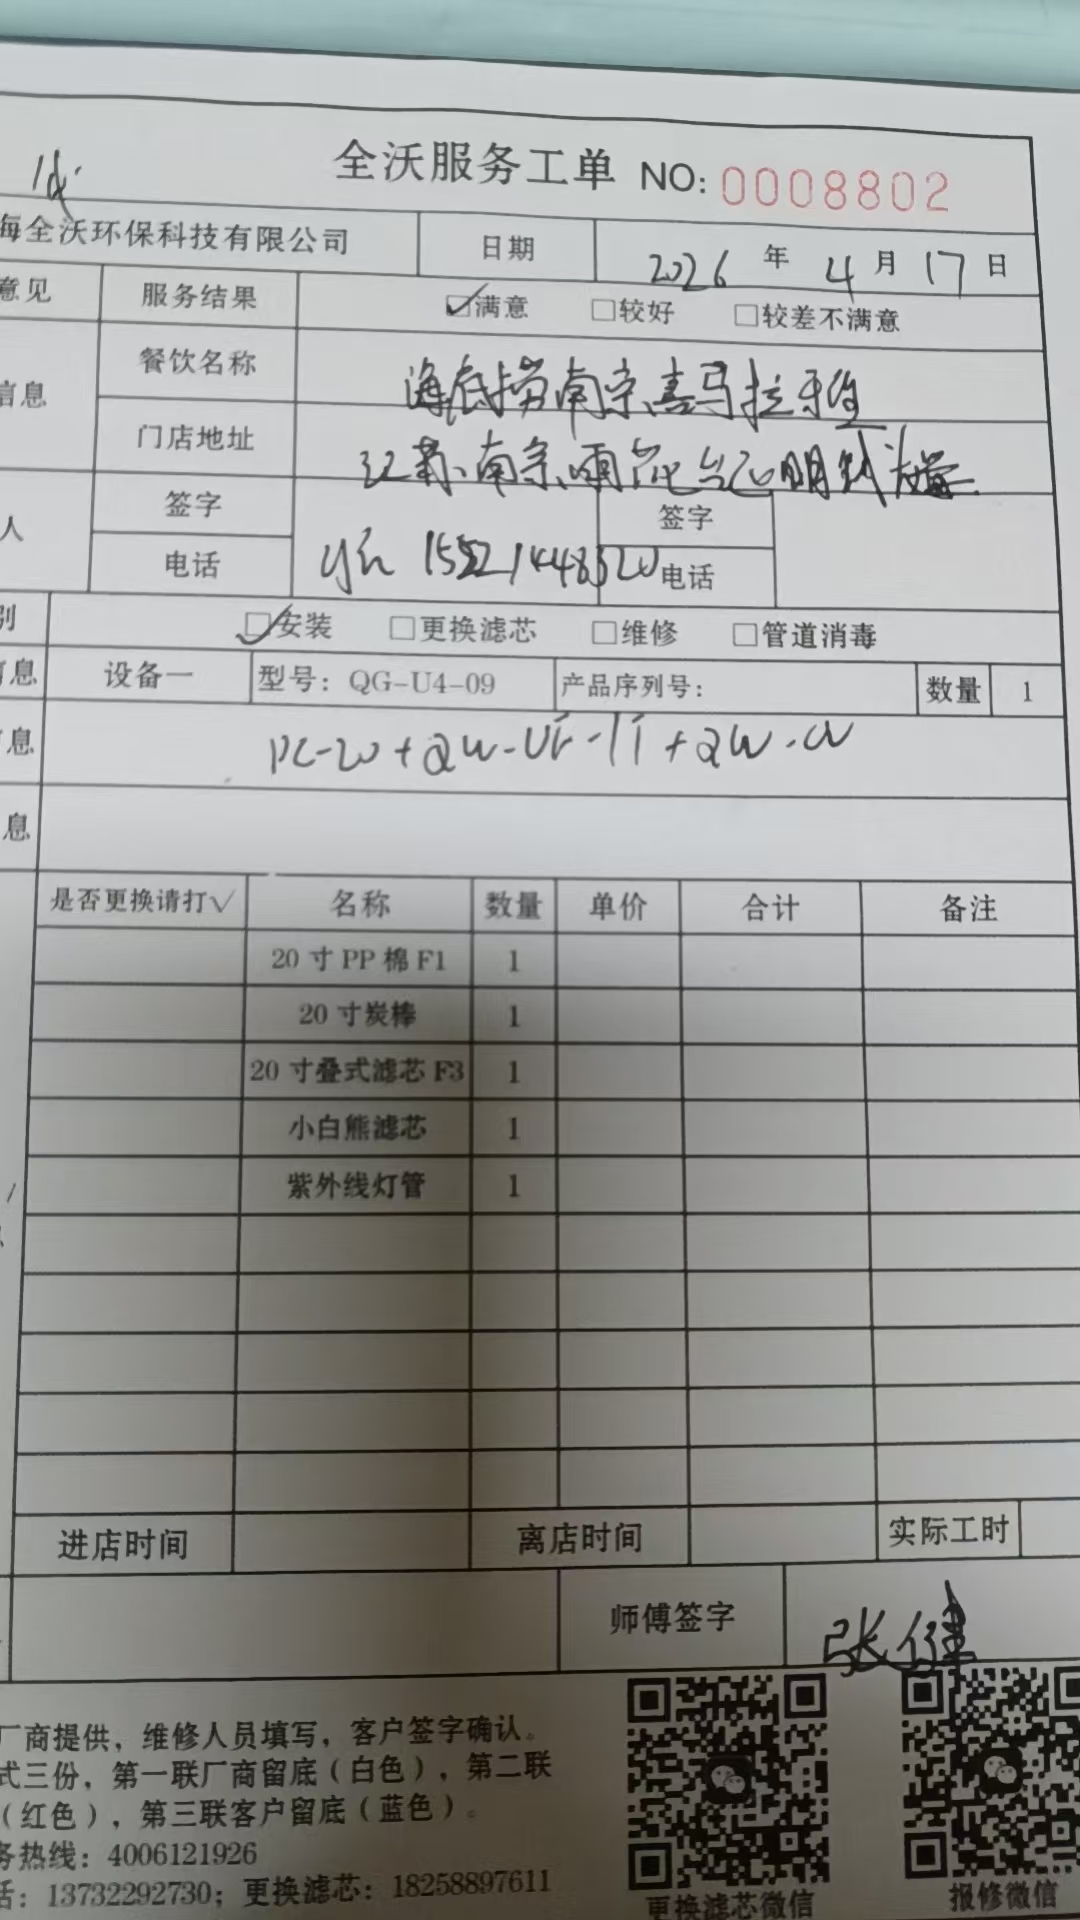 全沃服务工单 NO: 0008802
海全沃环保科技有限公司 日期 2026 年 4 月 17 日
意见 服务结果 ☑满意 □较好 □较差不满意
信息 餐饮名称 海底捞南京喜马拉雅
门店地址 江苏南京雨花台区明城大道
人 签字 签字
电话 电话
别 ☑安装 □更换滤芯 □维修 □管道消毒
信息 设备一 型号：QG-U4-09 产品序列号： 数量 1
息
息
是否更换请打√ 名称 数量 单价 合计 备注
20寸PP棉F1 1
20寸炭棒 1
20寸叠式滤芯F3 1
小白熊滤芯 1
紫外线灯管 1
进店时间 离店时间 实际工时
师傅签字 张健
厂商提供，维修人员填写，客户签字确认。
式三份，第一联厂商留底（白色），第二联
（红色），第三联客户留底（蓝色）。
务热线：4006121926
话：13732292730；更换滤芯：18258897611
更换滤芯微信 报修微信